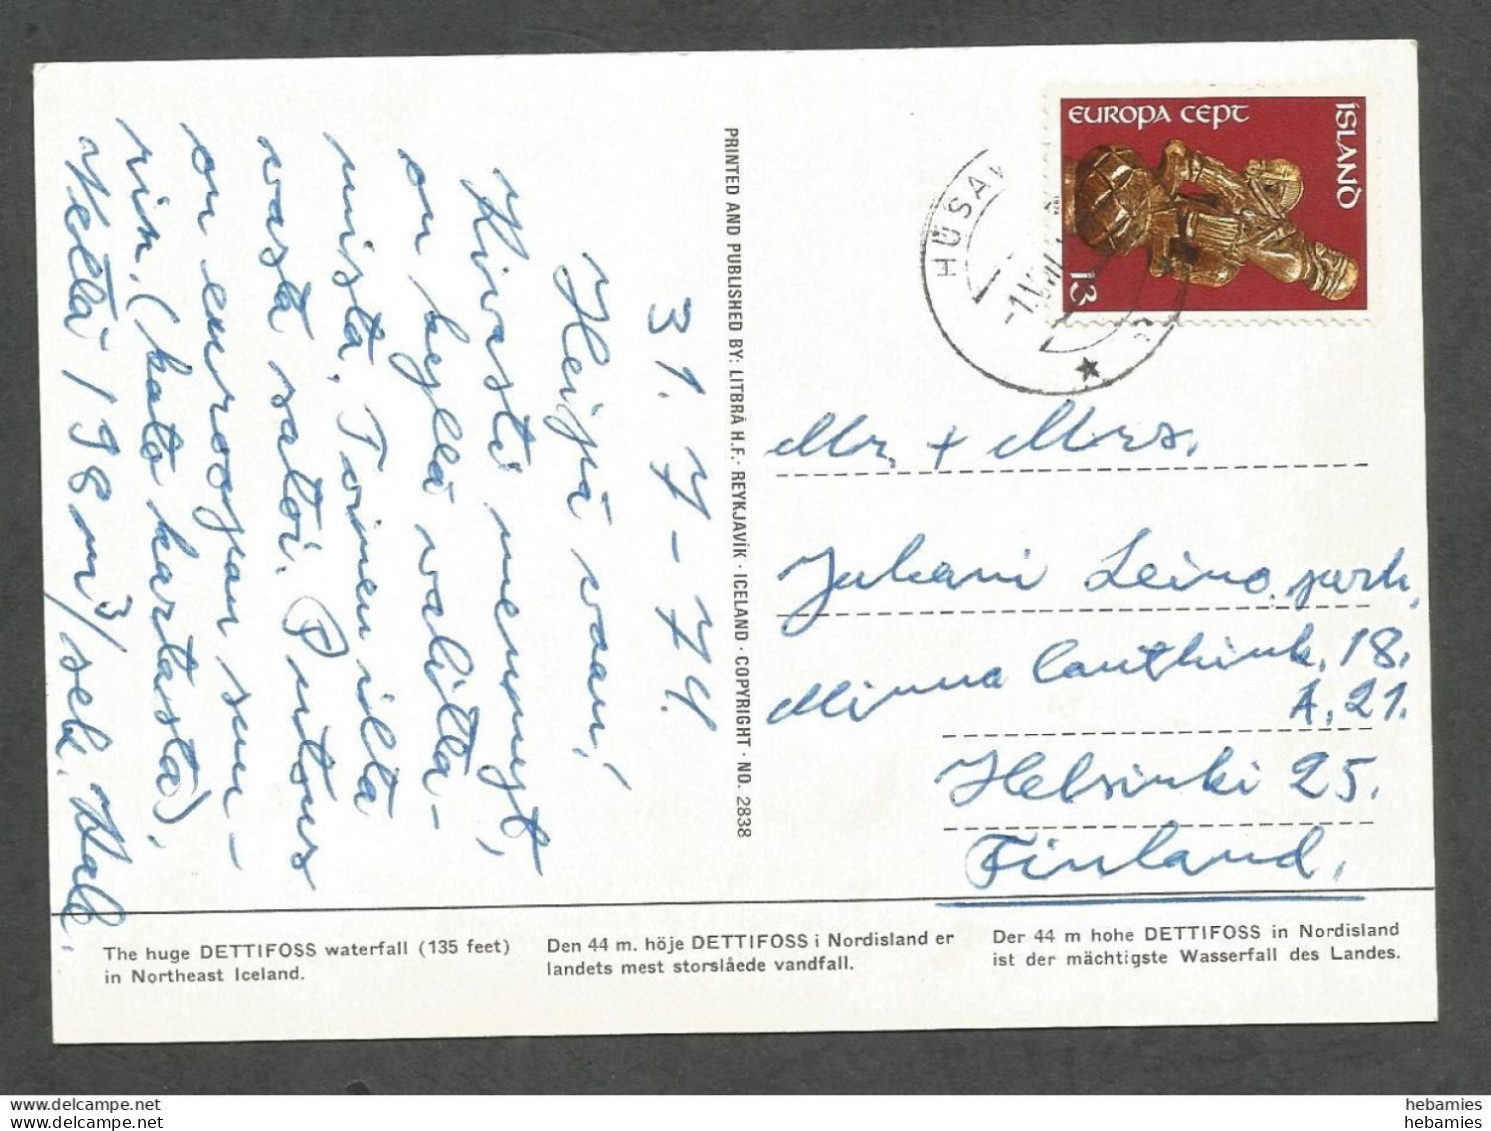 31.7-74.
Heipä vaan!
Hivasti mennyt,
on kyllä valitta-
mista. Toinen ilta
vasta satoi. Putous
on euroopan suu-
rin. (kato kartasta).
Vettä 198 m³/sek.
PRINTED AND PUBLISHED BY: LITBRÁ H.F. · REYKJAVÍK · ICELAND · COPYRIGHT · NO. 2838
EUROPA CEPT
ÍSLAND
13
HÚSAV
Mr. + Mrs.
Juhani Leino perh.
Minna Canthink. 18.
A. 21.
Helsinki 25.
Finland.
The huge DETTIFOSS waterfall (135 feet)
in Northeast Iceland.
Den 44 m. höje DETTIFOSS i Nordisland er
landets mest storslåede vandfall.
Der 44 m hohe DETTIFOSS in Nordisland
ist der mächtigste Wasserfall des Landes.
hebamies
hebamies
hebamies
hebamies